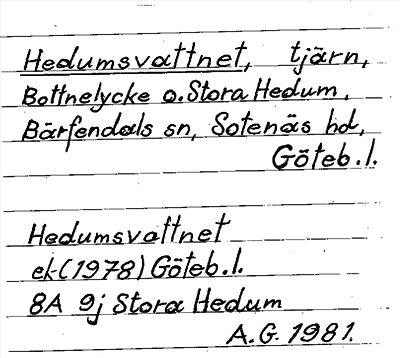 Hedumsvattnet, tjärn,
Bottnelycke o. Stora Hedum,
Bärfendals sn, Sotenäs hd,
Göteb. l.
Hedumsvattnet
ek (1978) Göteb. l.
8A 9j Stora Hedum
A.G. 1981.